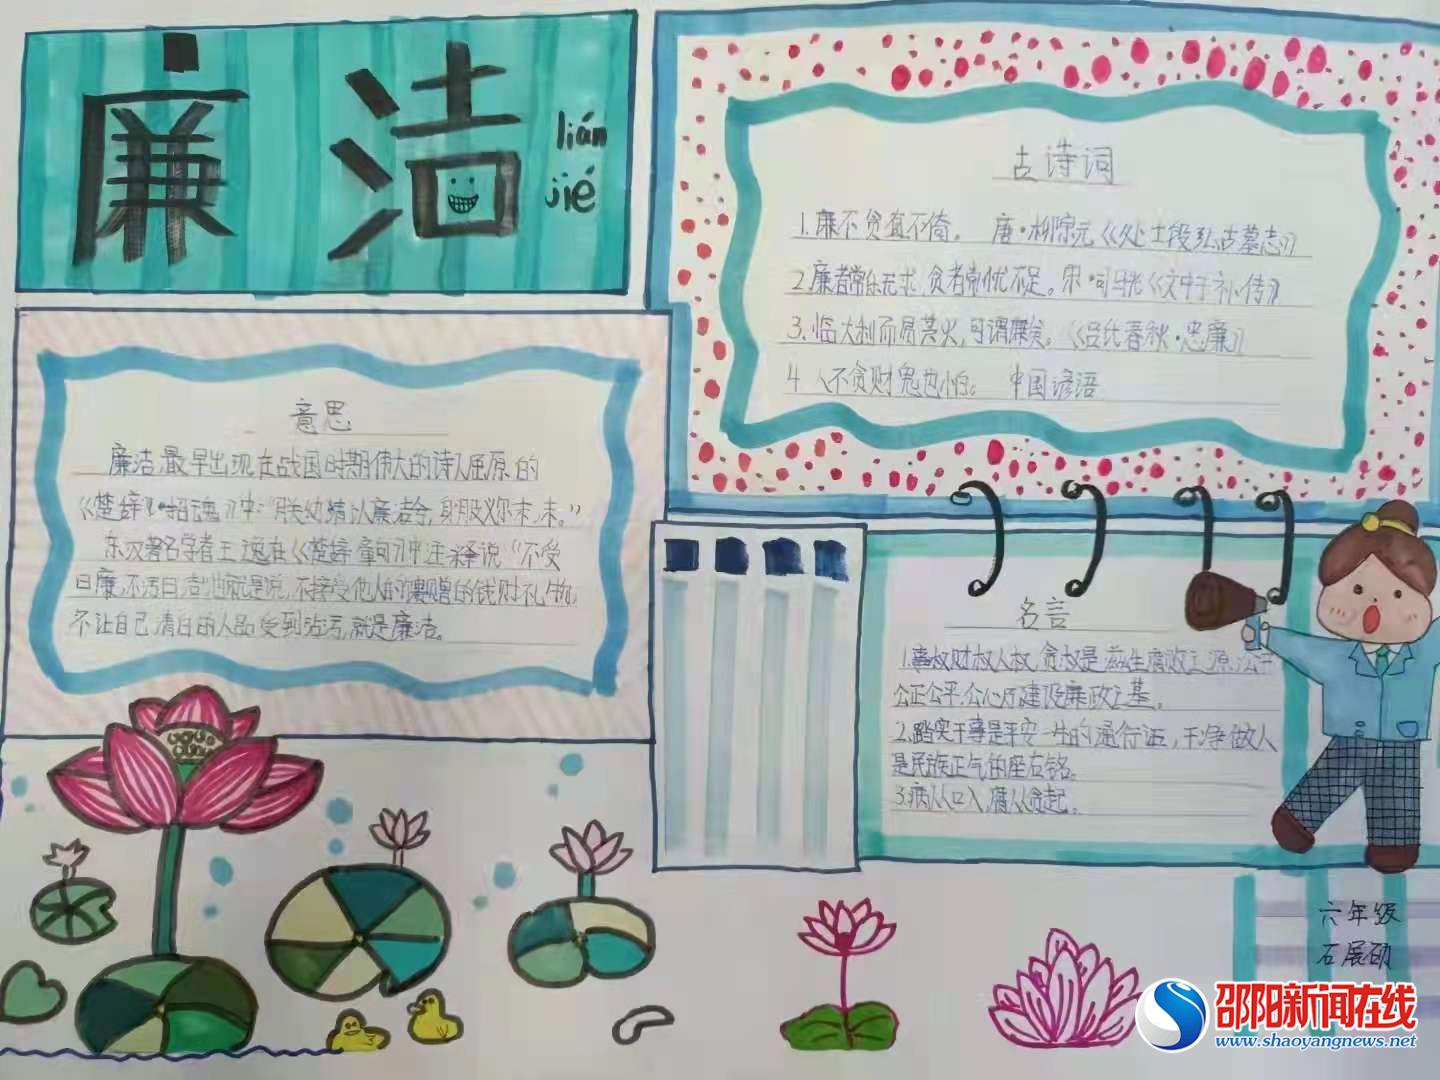 廉洁
lián
jié
古诗词
1.廉不贪直不倚。 唐·柳宗元《处士段弘古墓志》
2.廉者常乐无求,贪者常忧不足。宋·司马光《文中子补传》
3.临大利而易其火,可谓廉矣。《吕氏春秋·忠廉》
4 人不贪财鬼也怕。 中国谚语
意思
廉洁,最早出现在战国时期伟大的诗人屈原的
《楚辞·招魂》中:"朕幼清以廉洁兮,身服义尔未,未。"
东汉著名学者王逸在《楚辞·章句》中注释说"不受
曰廉,不污曰洁"也就是说,不接受他人的馈赠的钱财礼物,
不让自己清白的人品受到沾污,就是廉洁。
名言
1.事权财权人权,贪权是滋生腐败之源;公平
公正公平,公心乃建设廉政之基。
2.踏实干事是平安一生的通行证,干净做人
是民族正气的座右铭。
3.病从口入,腐从贪起。
六年级
石展硕
邵阳新闻在线
www.shaoyangnews.net